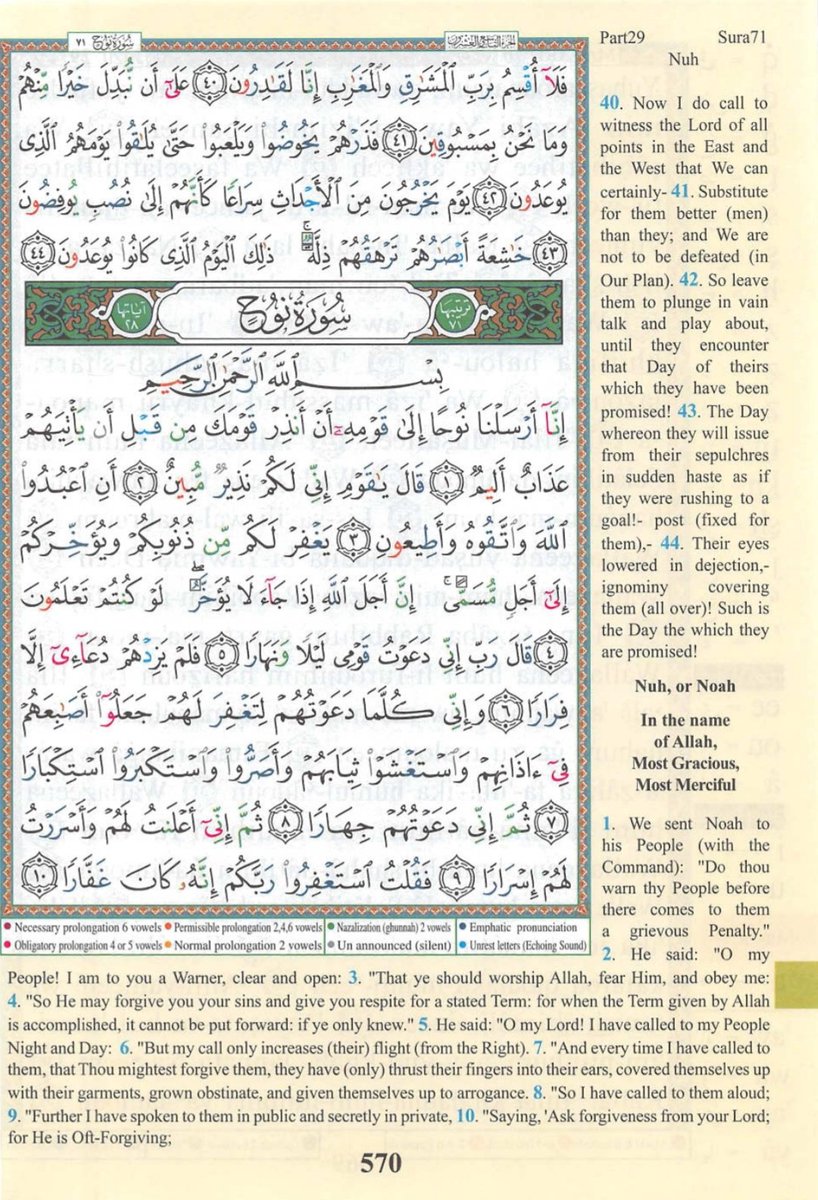 سُورَةُ نُوحٍ ٧١
الجزء التاسع والعشرون
Part29 Sura71
Nuh
فَلَآ أُقْسِمُ بِرَبِّ ٱلْمَشَٰرِقِ وَٱلْمَغَٰرِبِ إِنَّا لَقَٰدِرُونَ ٤٠ عَلَىٰٓ أَن نُّبَدِّلَ خَيْرًا مِّنْهُمْ
وَمَا نَحْنُ بِمَسْبُوقِينَ ٤١ فَذَرْهُمْ يَخُوضُوا۟ وَيَلْعَبُوا۟ حَتَّىٰ يُلَٰقُوا۟ يَوْمَهُمُ ٱلَّذِى
يُوعَدُونَ ٤٢ يَوْمَ يَخْرُجُونَ مِنَ ٱلْأَجْدَاثِ سِرَاعًا كَأَنَّهُمْ إِلَىٰ نُصُبٍ يُوفِضُونَ
٤٣ خَٰشِعَةً أَبْصَٰرُهُمْ تَرْهَقُهُمْ ذِلَّةٌ ۚ ذَٰلِكَ ٱلْيَوْمُ ٱلَّذِى كَانُوا۟ يُوعَدُونَ ٤٤
ترتيبها ٧١ سُورَةُ نُوحٍ آياتها ٢٨
بِسْمِ ٱللَّهِ ٱلرَّحْمَٰنِ ٱلرَّحِيمِ
إِنَّآ أَرْسَلْنَا نُوحًا إِلَىٰ قَوْمِهِۦٓ أَنْ أَنذِرْ قَوْمَكَ مِن قَبْلِ أَن يَأْتِيَهُمْ
عَذَابٌ أَلِيمٌ ١ قَالَ يَٰقَوْمِ إِنِّى لَكُمْ نَذِيرٌ مُّبِينٌ ٢ أَنِ ٱعْبُدُوا۟
ٱللَّهَ وَٱتَّقُوهُ وَأَطِيعُونِ ٣ يَغْفِرْ لَكُم مِّن ذُنُوبِكُمْ وَيُؤَخِّرْكُمْ
إِلَىٰٓ أَجَلٍ مُّسَمًّى ۚ إِنَّ أَجَلَ ٱللَّهِ إِذَا جَآءَ لَا يُؤَخَّرُ ۖ لَوْ كُنتُمْ تَعْلَمُونَ
٤ قَالَ رَبِّ إِنِّى دَعَوْتُ قَوْمِى لَيْلًا وَنَهَارًا ٥ فَلَمْ يَزِدْهُمْ دُعَآءِىٓ إِلَّا
فِرَارًا ٦ وَإِنِّى كُلَّمَا دَعَوْتُهُمْ لِتَغْفِرَ لَهُمْ جَعَلُوٓا۟ أَصَٰبِعَهُمْ
فِىٓ ءَاذَانِهِمْ وَٱسْتَغْشَوْا۟ ثِيَابَهُمْ وَأَصَرُّوا۟ وَٱسْتَكْبَرُوا۟ ٱسْتِكْبَارًا
٧ ثُمَّ إِنِّى دَعَوْتُهُمْ جِهَارًا ٨ ثُمَّ إِنِّىٓ أَعْلَنتُ لَهُمْ وَأَسْرَرْتُ
لَهُمْ إِسْرَارًا ٩ فَقُلْتُ ٱسْتَغْفِرُوا۟ رَبَّكُمْ إِنَّهُۥ كَانَ غَفَّارًا ١٠
Necessary prolongation 6 vowels Permissible prolongation 2,4,6 vowels Nazalization (ghunnah) 2 vowels Emphatic pronunciation
Obligatory prolongation 4 or 5 vowels Normal prolongation 2 vowels Un announced (silent) Unrest letters (Echoing Sound)
40. Now I do call to
witness the Lord of all
points in the East and
the West that We can
certainly- 41. Substitute
for them better (men)
than they; and We are
not to be defeated (in
Our Plan). 42. So leave
them to plunge in vain
talk and play about,
until they encounter
that Day of theirs
which they have been
promised! 43. The Day
whereon they will issue
from their sepulchres
in sudden haste as if
they were rushing to a
goal!- post (fixed for
them),- 44. Their eyes
lowered in dejection,-
ignominy covering
them (all over)! Such is
the Day the which they
are promised!
Nuh, or Noah
In the name
of Allah,
Most Gracious,
Most Merciful
1. We sent Noah to
his People (with the
Command): "Do thou
warn thy People before
there comes to them
a grievous Penalty."
2. He said: "O my
People! I am to you a Warner, clear and open: 3. "That ye should worship Allah, fear Him, and obey me:
4. "So He may forgive you your sins and give you respite for a stated Term: for when the Term given by Allah
is accomplished, it cannot be put forward: if ye only knew." 5. He said: "O my Lord! I have called to my People
Night and Day: 6. "But my call only increases (their) flight (from the Right). 7. "And every time I have called to
them, that Thou mightest forgive them, they have (only) thrust their fingers into their ears, covered themselves up
with their garments, grown obstinate, and given themselves up to arrogance. 8. "So I have called to them aloud;
9. "Further I have spoken to them in public and secretly in private, 10. "Saying, 'Ask forgiveness from your Lord;
for He is Oft-Forgiving;
570